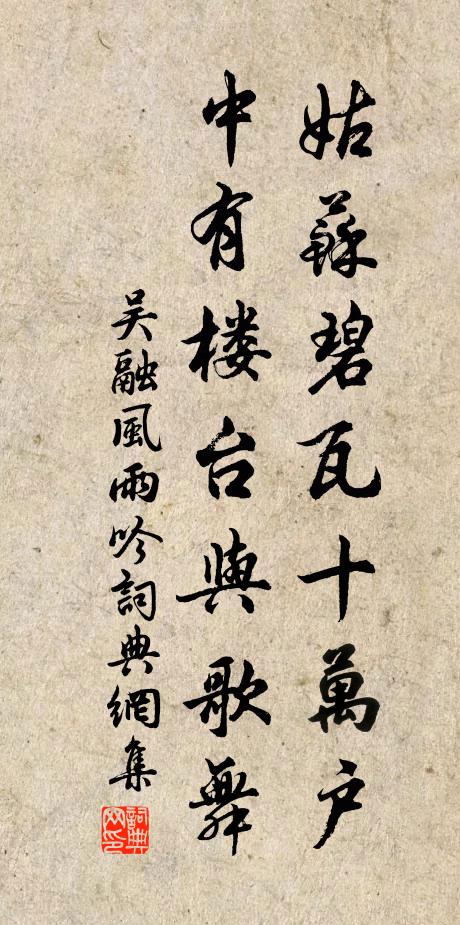 姑蘇碧瓦十萬户
中有楼台與歌舞
吴融風雨吟詞典網集
詞典网印